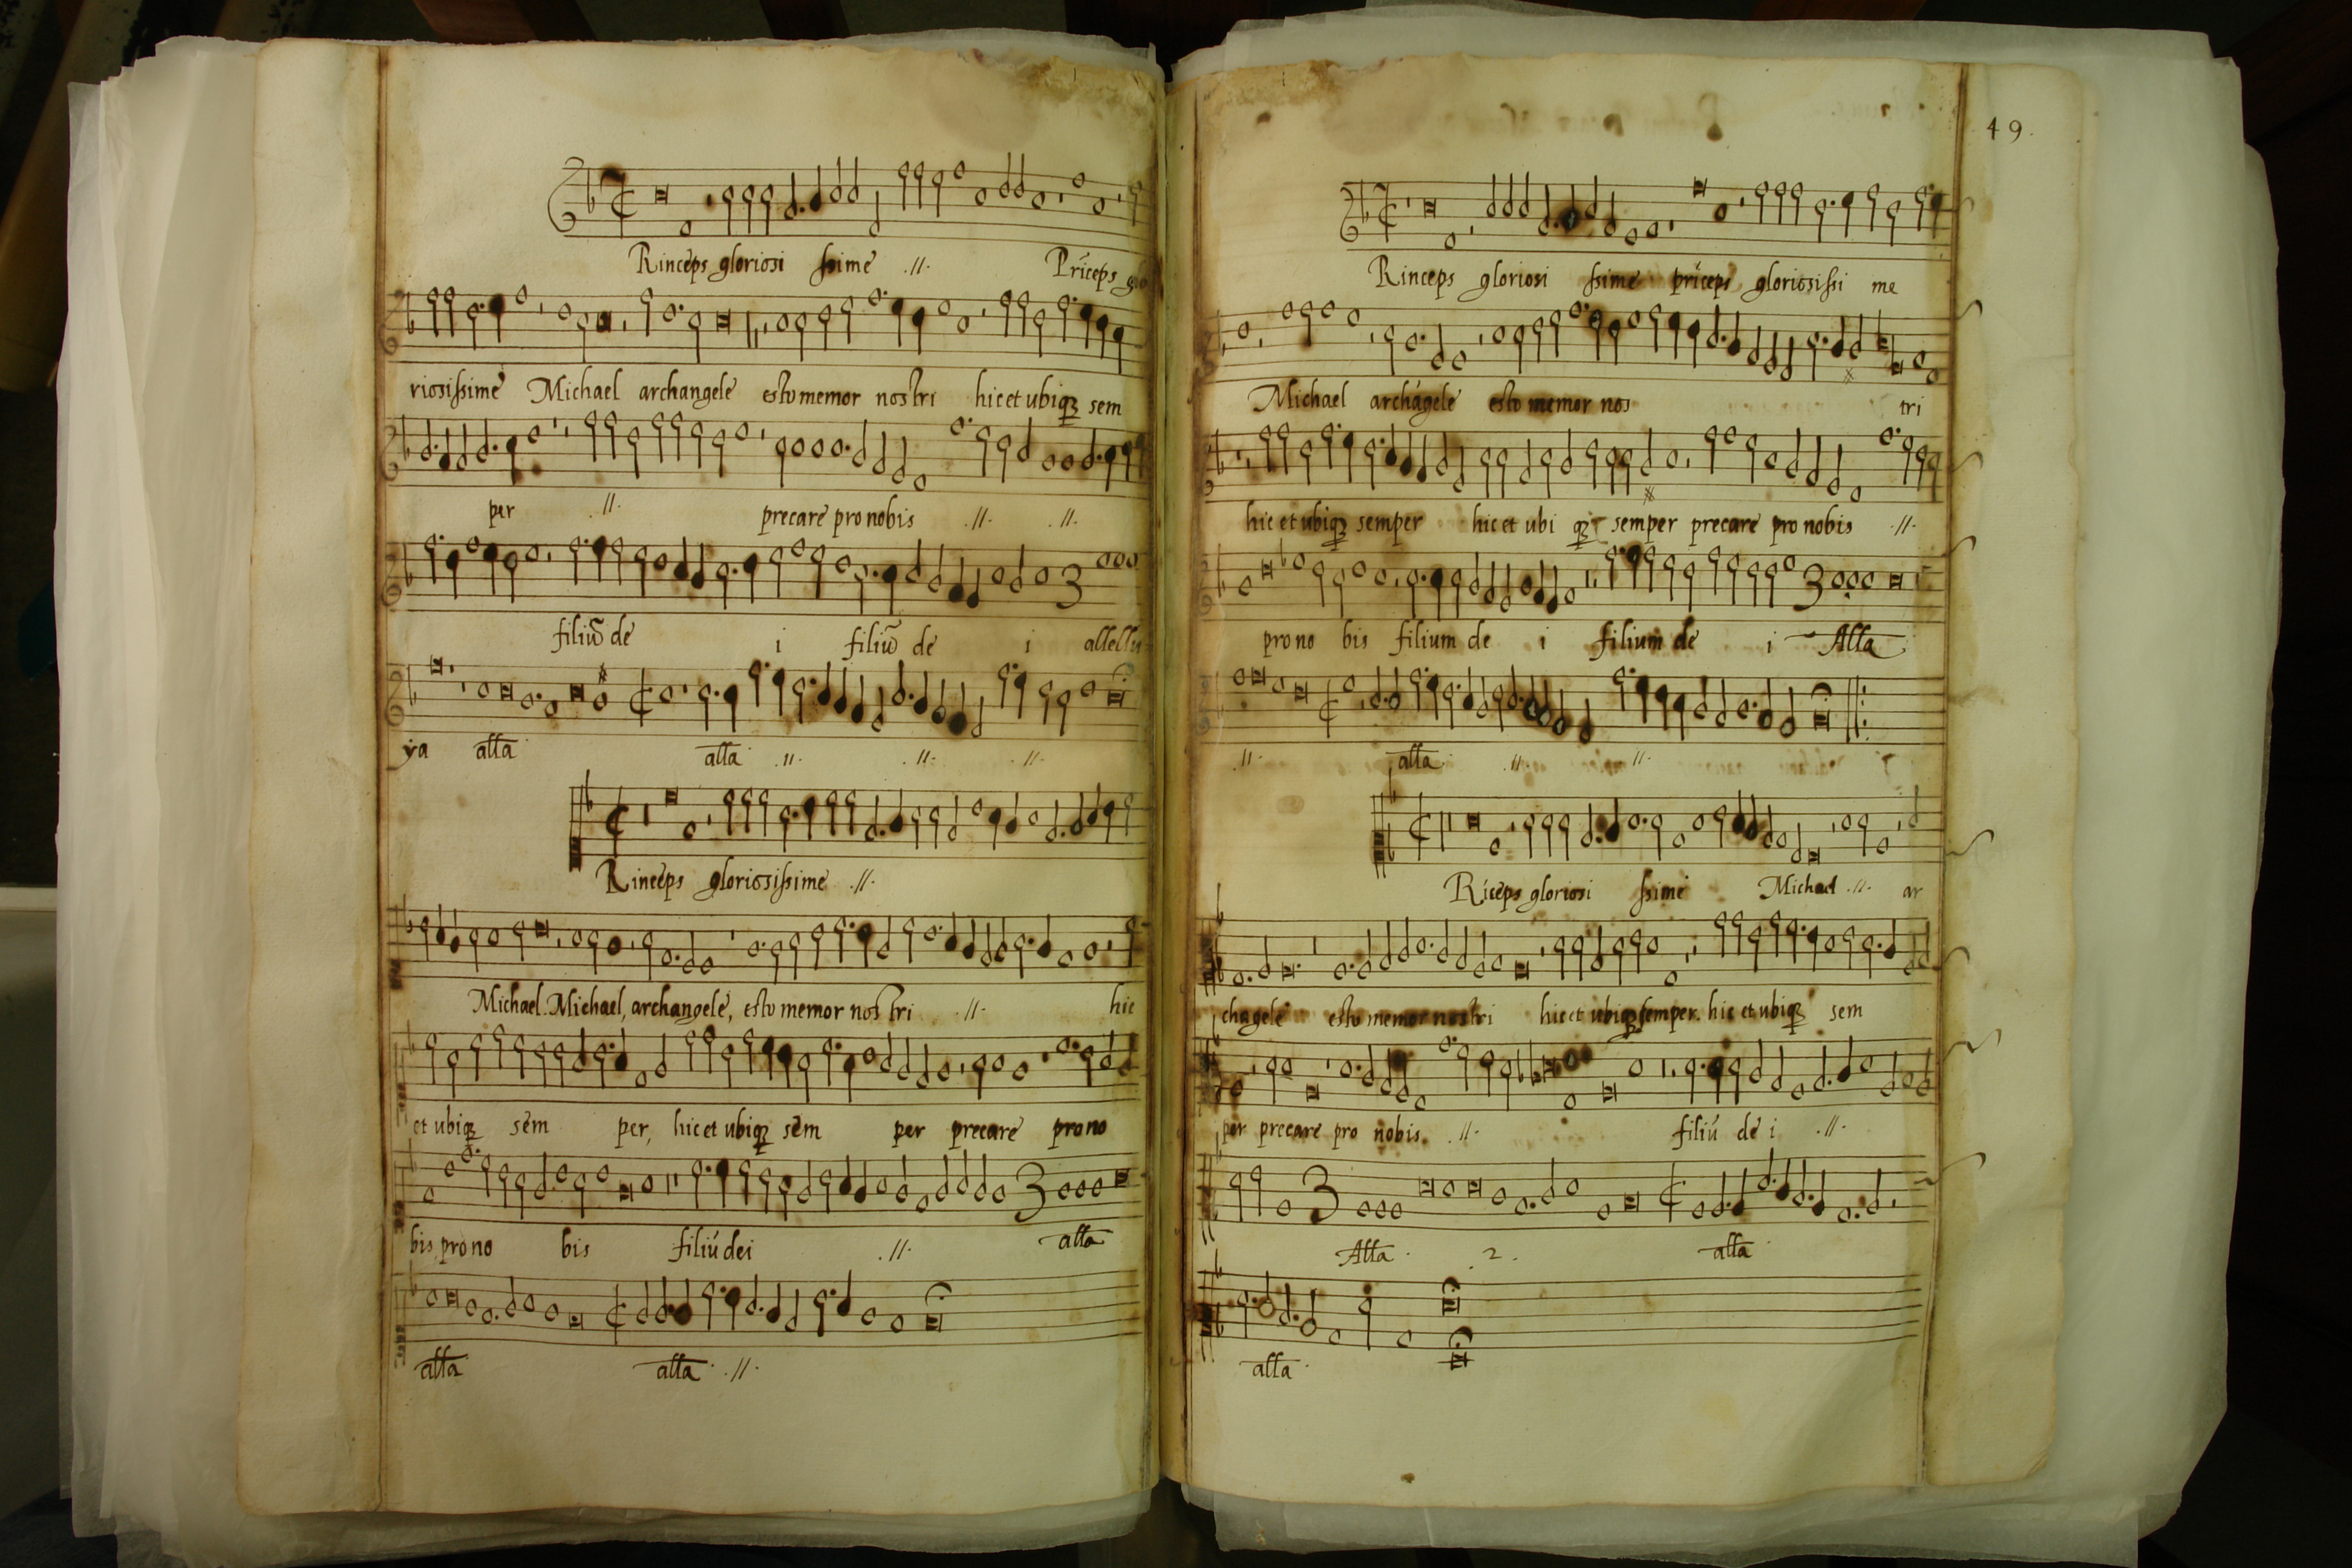 Rinceps gloriosi ssime .//. Príceps glo
riosissime Michael archangele esto memor nostri hic et ubiqꝫ sem
per .//. precare pro nobis .//. .//.
filiũ de i filiũ de i allellu
ya alla alla .//. .//. .//.
Rinceps gloriosissime .//.
Michael. Michael, archangele, esto memor nostri .//. hic
et ubiqꝫ sem per, hic et ubiqꝫ sem per precare pro no
bis, pro no bis filiú dei .//. alla
alla alla .//.
49.
Rinceps gloriosi ssime príceps gloriosissi me
Michael archágele esto memor nos tri
hic et ubiqꝫ semper hic et ubi qꝫ semper precare pro nobis .//.
pro no bis filium de i filium de i Alla
.//. alla .//. .//.
Ríceps gloriosi ssime Michael .//. ar
chagele esto memor nostri hic et ubiqꝫ semper. hic et ubiqꝫ sem
per precare pro nobis. .//. filiú de i .//.
Alla . 2 . alla
alla